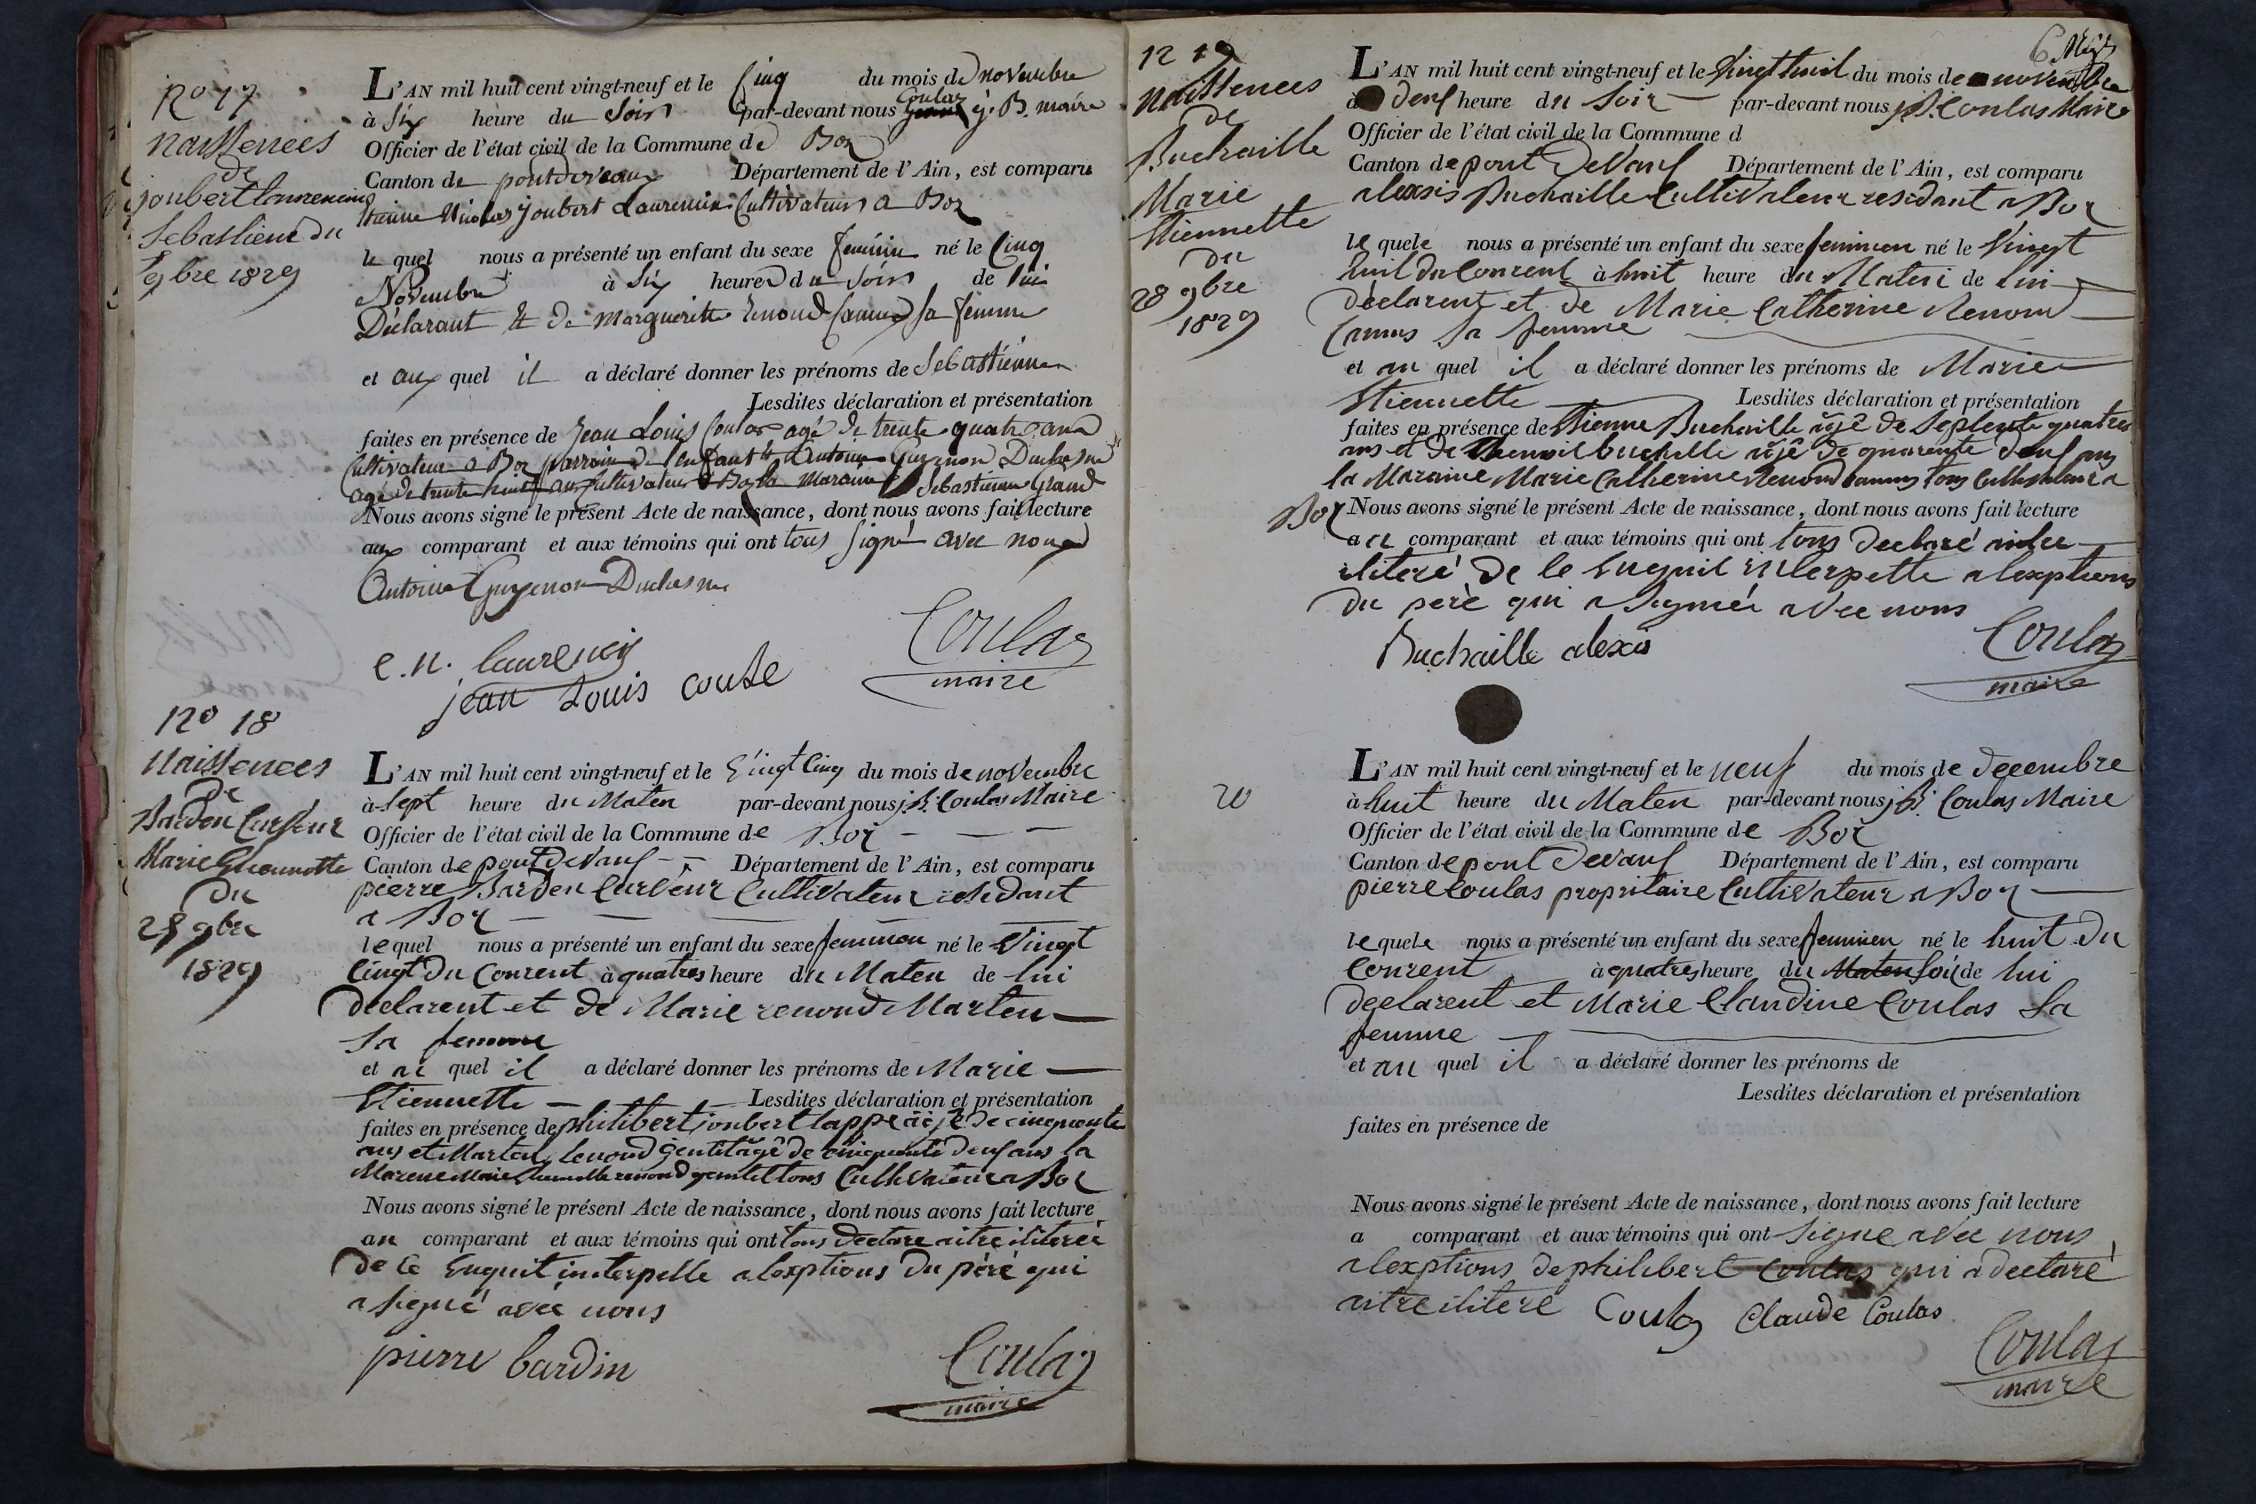 N° 17
Naissences
de
joubert laurencin
Sebastiene du
5 9bre 1829
L'AN mil huit cent vingt-neuf et le Cinq du mois de novembre
à Six heure du Soir par-devant nous Coulas j. B. maire
Officier de l'état civil de la Commune de Boz
Canton de pontdevaux Département de l'Ain, est comparu
Etienne Nicolas joubert Laurencin Cultivateur a Boz
le quel nous a présenté un enfant du sexe feminin né le Cinq
Novembre à Six heures du Soir de lui
Déclarant Et de Margueritte Renoud Camus Sa femme
et aux quel il a déclaré donner les prénoms de Sebastienne
Lesdites déclaration et présentation
faites en présence de Jean Louis Coulas agé de trente quatre ans
Cultivateur a Boz parrain de l'enfant & d'Antoine Guyenon Duchesne
agé de trente huit ans Cultivateur a Boz la Maraine Sebastienne Grand
Nous avons signé le présent Acte de naissance, dont nous avons fait lecture
aux comparant et aux témoins qui ont tous Signé avec nous
Antoine Guyenon Duchesne
e. n. laurencin
Coulas
maire
jean Louis coulse
N° 18
Naissences
De
Bardon Curveur
Marie Etiennette
du
25 9bre
1829
L'AN mil huit cent vingt-neuf et le Vingt Cinq du mois de novembre
à Sept heure du Maten par-devant nous j. B. Coulas Maire
Officier de l'état civil de la Commune de Boz
Canton de pont De Vauf Département de l'Ain, est comparu
pierre Barden Curveur Cultivateur residant
a Boz
le quel nous a présenté un enfant du sexe feminon né le Vingt
Cingt du Courent à quatres heure du Maten de lui
Declarent et de Marie renoud Marten
Sa femme
et au quel il a déclaré donner les prénoms de Marie
Etiennette Lesdites déclaration et présentation
faites en présence de philibert joubert lappe ajé De cinquante
ans et Marten Renoud gentit âgê de cinquante deuf ans la
Marene Marie Etiennette renoud gentit tous Cultivateur a Boz
Nous avons signé le présent Acte de naissance, dont nous avons fait lecture
au comparant et aux témoins qui ont tous declare aitre iliterée
de Ce Enquit interpelle a lexptions du péré qui
a Signé avec nous
pierre bardin
Coulas
maire
6. 
N° 19
Naissences
De
Buchaille
Marie
Etiennette
du
28 9bre
1829
L'AN mil huit cent vingt-neuf et le Vingt huit du mois de novembre
à deuf heure du Soir par-devant nous j. B. Coulas Maire
Officier de l'état civil de la Commune d
Canton de pont De Vauf Département de l'Ain, est comparu
alexsis Buchaille Cultivateur residant a Boz
le quele nous a présenté un enfant du sexe feminien né le Vingt
huit du Courent à huit heure du Maten de lui
déclarent et de Marie Catherine Renoud
Camus sa femme
et au quel il a déclaré donner les prénoms de Marie
Etiennette Lesdites déclaration et présentation
faites en présence de Etienne Buchaille âjê de Septente quatres
ans et de Benoit buchelle ajê de quarente deuf ans
la Maraine Marie Catherine Renoud camus tous Cultivateur a
Boz Nous avons signé le présent Acte de naissance, dont nous avons fait lecture
au comparant et aux témoins qui ont tous Declaré aitre
iliteré de le Enquit interpette a lexptions
du peré qui a Signé avec nous
Buchaille alexis
Coulas
maire
20
L'AN mil huit cent vingt-neuf et le neuf du mois de decembre
à huit heure du Maten par-devant nous j. B. Coulas Maire
Officier de l'état civil de la Commune de Boz
Canton de pont Devauf Département de l'Ain, est comparu
pierre Coulas propritaire Cultivateur a Boz
le quele nous a présenté un enfant du sexe feminien né le huit du
Courent à quatres heure du Maten Soir de lui
declarent et Marie Claudine Coulas Sa
femme
et au quel il a déclaré donner les prénoms de
Lesdites déclaration et présentation
faites en présence de
Nous avons signé le présent Acte de naissance, dont nous avons fait lecture
a comparant et aux témoins qui ont Signe avec nous
a lexptions de philibert Coulas qui a declaré
aitre ilitere Coulas Claude Coulas
Coulas
maire